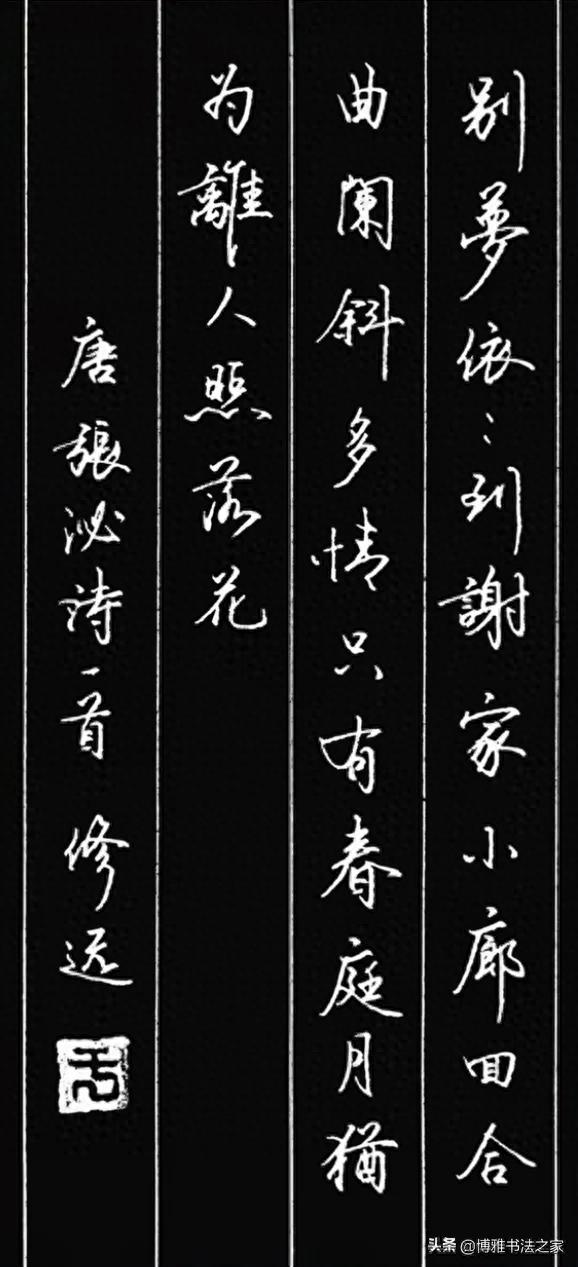 别夢依〻到謝家小廊回合
曲闌斜多情只有春庭月猶
为離人照落花
唐張泌诗一首 修远
头条 @博雅书法之家